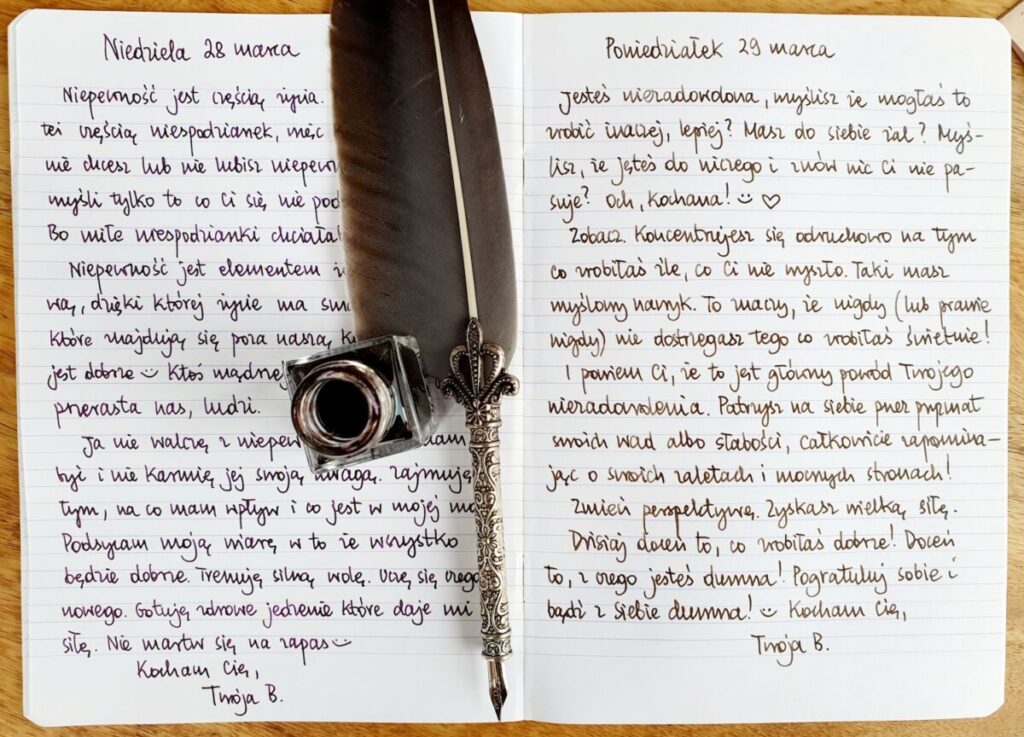 Niedziela 28 marca
Niepewność jest częścią życia.
też częścią niespodzianek, więc
nie chcesz lub nie lubisz niepewn
myśli tylko to co Ci się nie pod
Bo miłe niespodzianki chciała
Niepewność jest elementem
wą, dzięki której życie ma
które znajdują się poza naszą
jest dobrze Ktoś mądrzej
przerasta nas, ludzi.
Ja nie walczę z niepew
być i nie karmię jej swoją uwagą. Zajmuję
tym, na co mam wpływ i co jest w mojej
Podsycam moją wiarę w to że wszystko
będzie dobrze. Trenuję silną wolę. Uczę się czego
nowego. Gotuję zdrowe jedzenie które daje mi
siłę. Nie martw się na zapas
Kocham Cię,
Twoja B.
Poniedziałek 29 marca
Jesteś niezadowolona, myślisz że mogłaś to
zrobić inaczej, lepiej? Masz do siebie żal? Myś-
lisz, że jesteś do niczego i znów nic Ci nie pa-
suje? Och, Kochana! ☺ ♡
Zobacz. Koncentrujesz się odruchowo na tym
co zrobiłaś źle, co Ci nie wyszło. Taki masz
myślowy nawyk. To znaczy, że nigdy (lub prawie
nigdy) nie dostrzegasz tego co zrobiłaś świetnie!
I powiem Ci, że to jest główny powód Twojego
niezadowolenia. Patrzysz na siebie przez pryzmat
swoich wad albo słabości, całkowicie zapomina-
jąc o swoich zaletach i mocnych stronach!
Zmień perspektywę. Zyskasz wielką siłę.
Dzisiaj doceń to, co zrobiłaś dobrze! Doceń
to, z czego jesteś dumna! Pogratuluj sobie i
bądź z siebie dumna! ☺ Kocham Cię,
Twoja B.